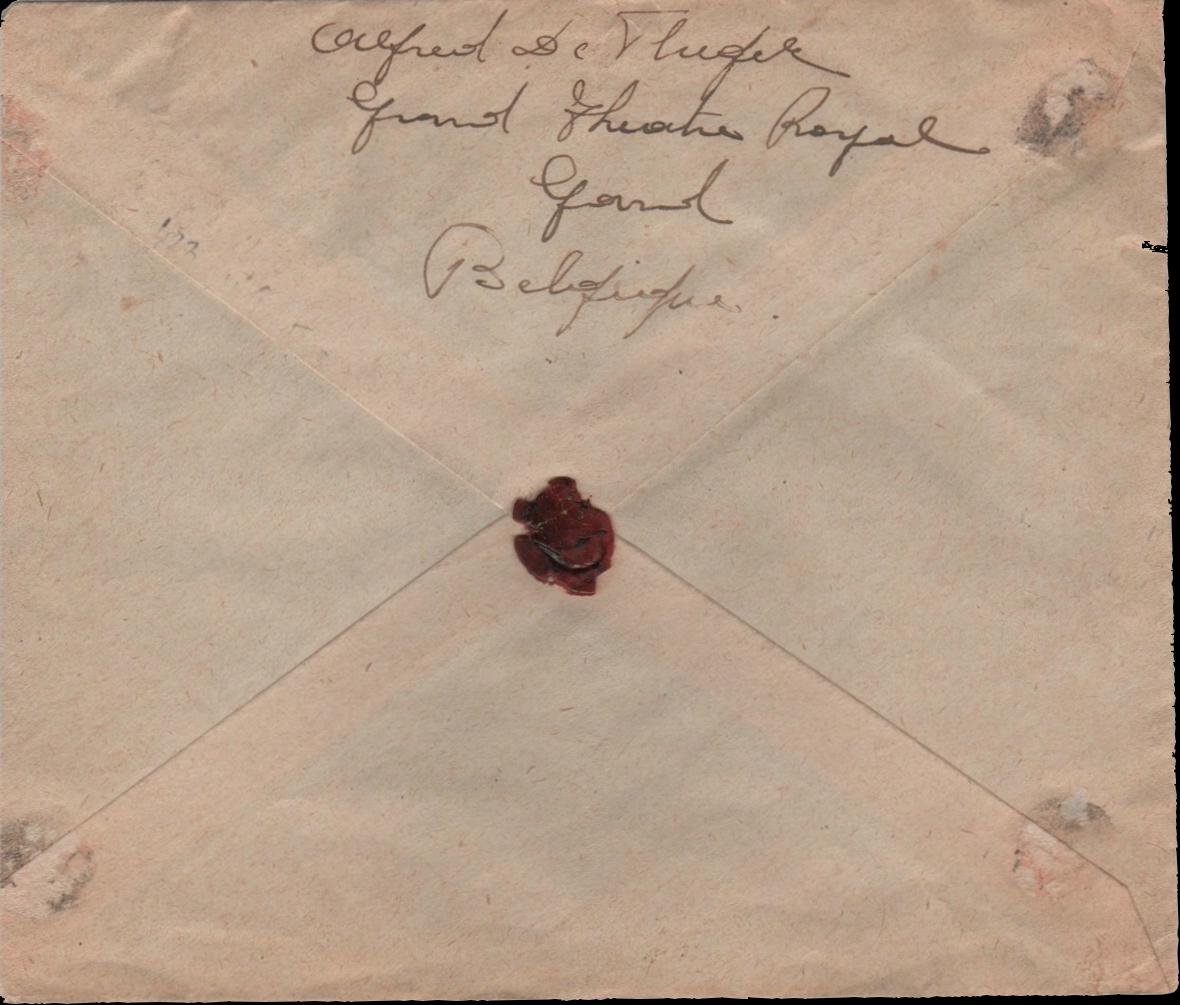 Alfred De
Grand Theatre Royal
Gand
Belgique